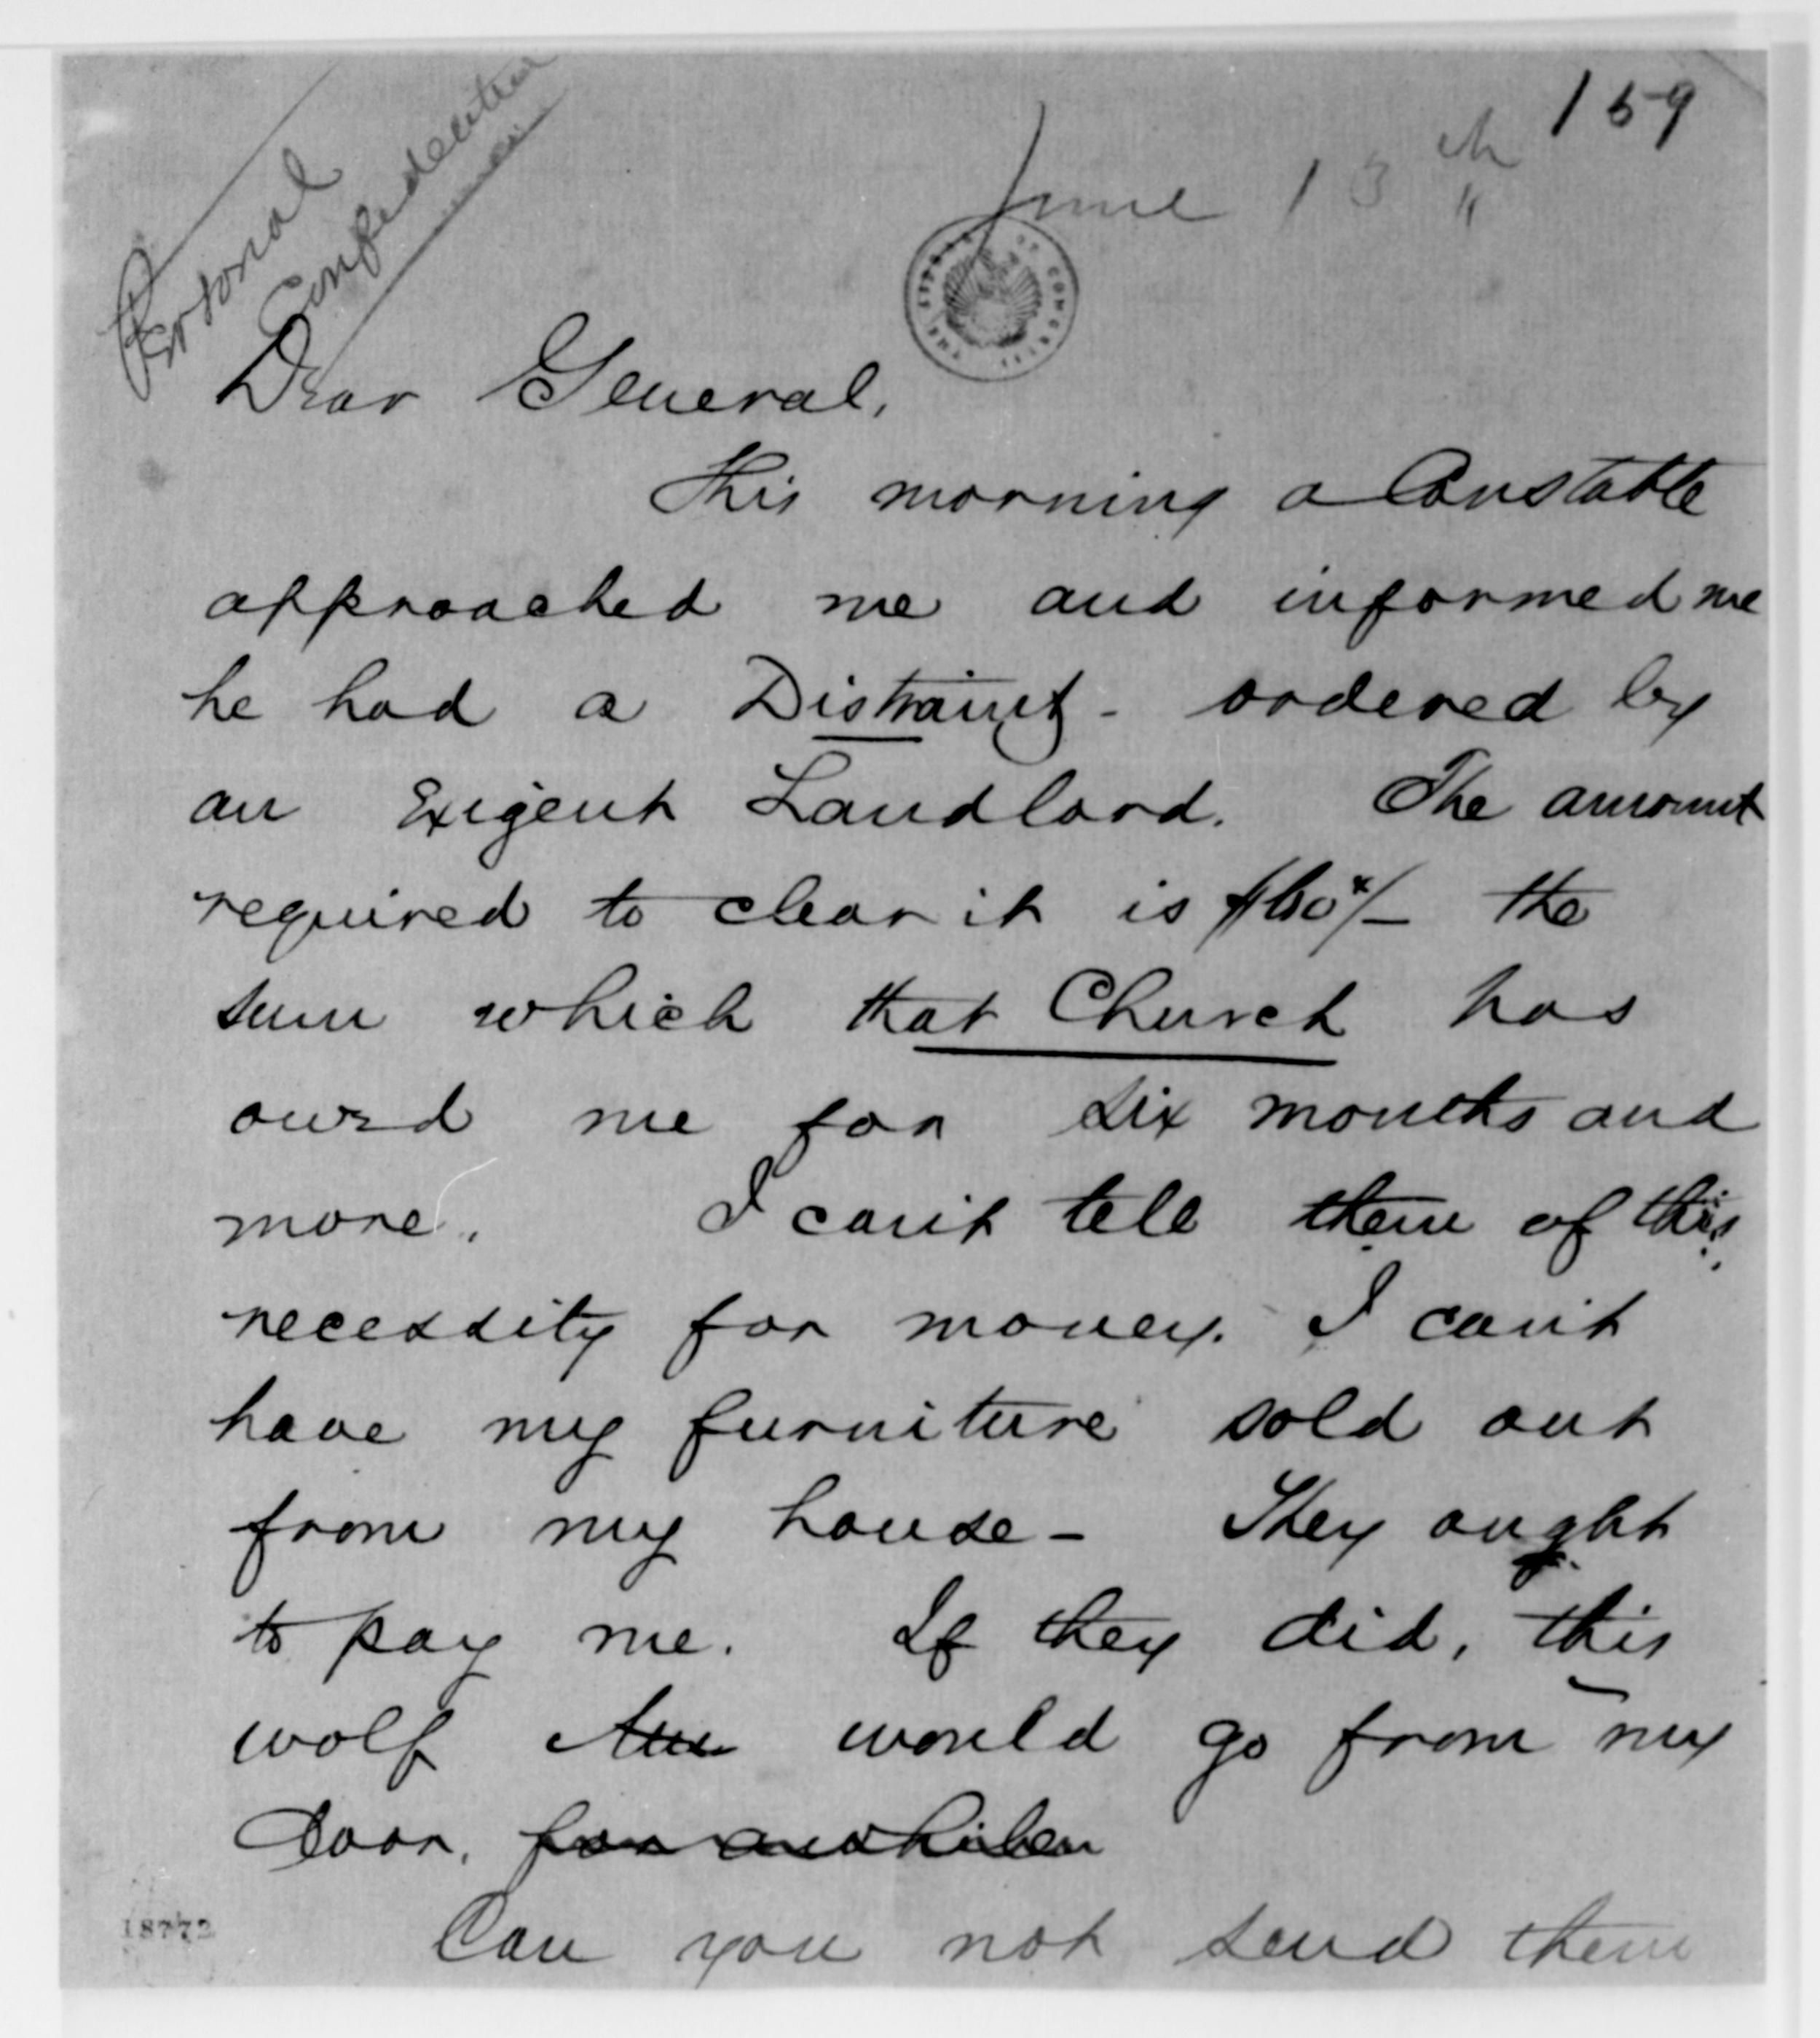 159
June 13th
Personal
Confidential
Dear General,
This morning a Constable
approached me and informed me
he had a Distraint - ordered by
an Exigent Landlord. The amount
required to clear it is the
sum which that Church has
owed me for six months and
more. I can't tell them of this
necessity for money. I can't
have my furniture sold out
from my house - They ought
to pay me. If they did, this
wolf would go from my
Door. for awhile
Can you not send them
18772